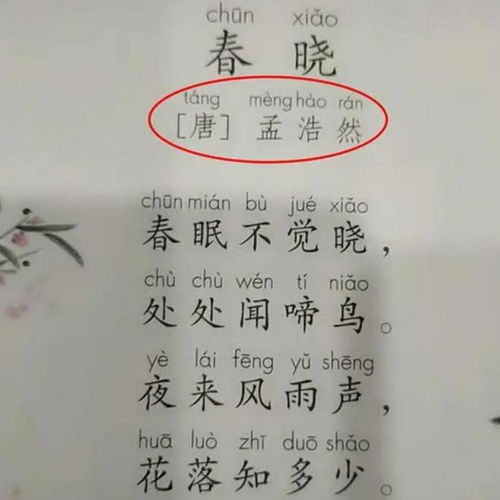 chūn xiǎo
春 晓
táng mèng hào rán
[唐] 孟浩然
chūn mián bù jué xiǎo
春眠不觉晓，
chù chù wén tí niǎo
处处闻啼鸟。
yè lái fēng yǔ shēng
夜来风雨声，
huā luò zhī duō shǎo
花落知多少。